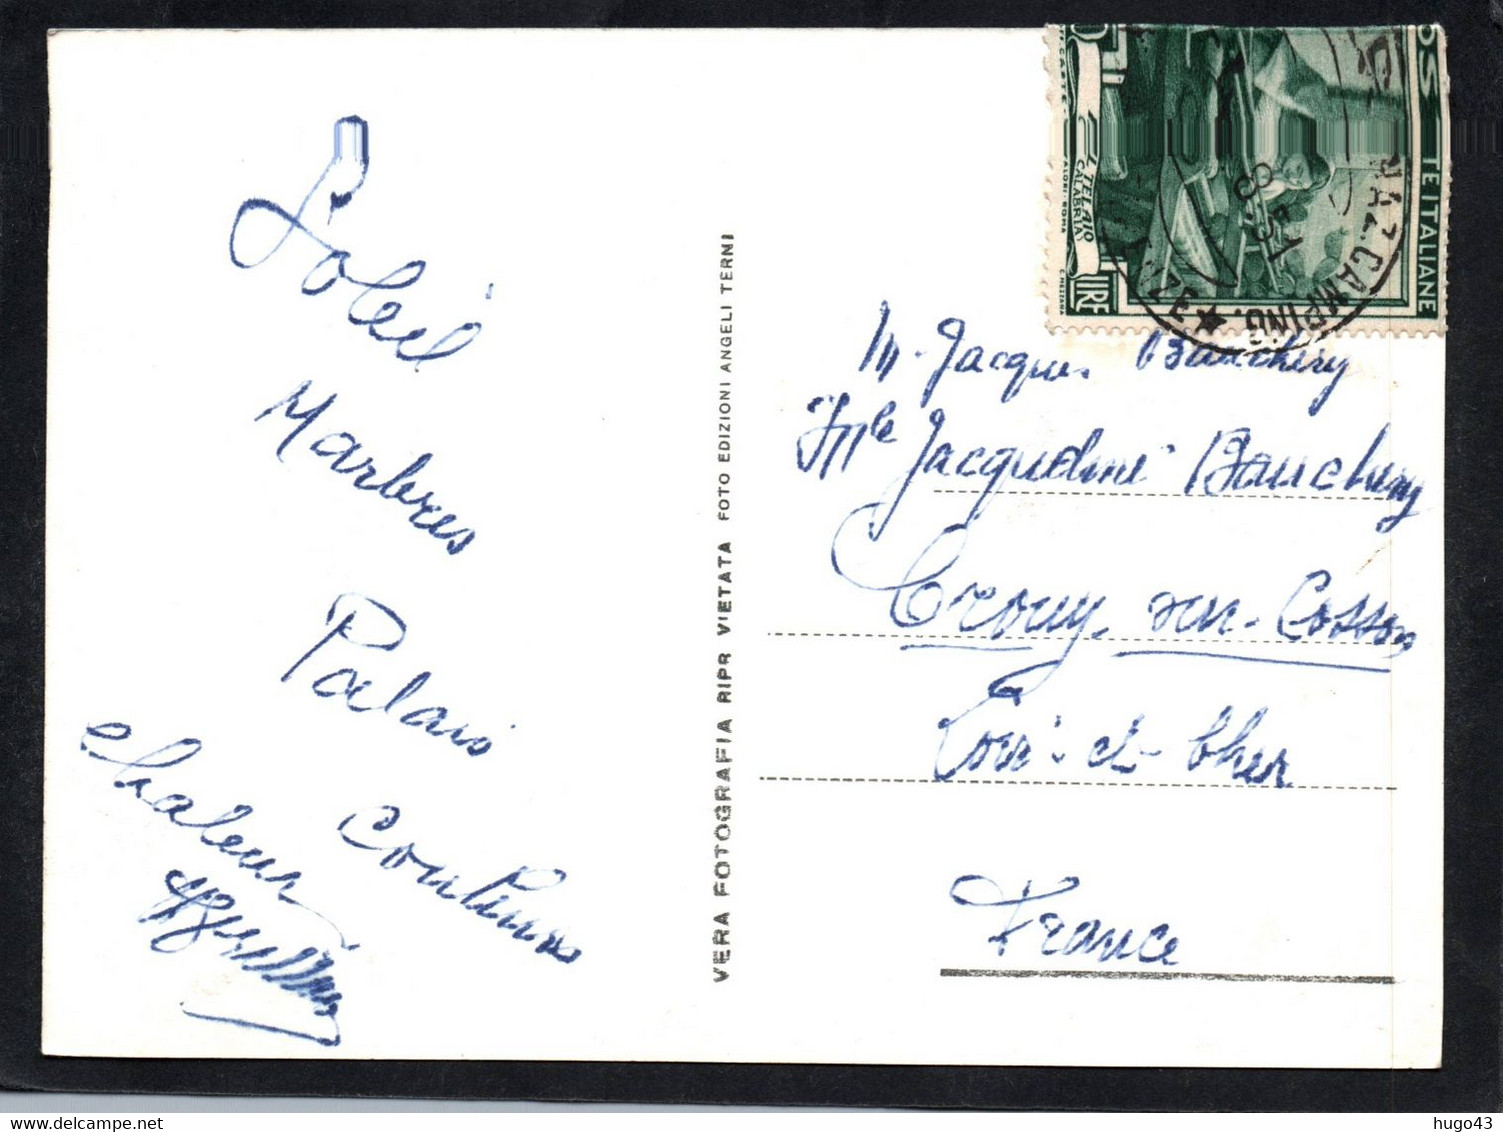 Soleil
Marbres
Palais
chaleur
continue
VERA FOTOGRAFIA RIPR VIETATA FOTO EDIZIONI ANGELI TERNI
TE ITALIANE
IL TELAIO
CALABRIA
LIRE
NAZ. CAMPING.
8.51
M. Jacques Bauchery
Mlle Jacqueline Bauchery
Crouy-sur-Cosson
Loir-et-Cher
France
hugo43